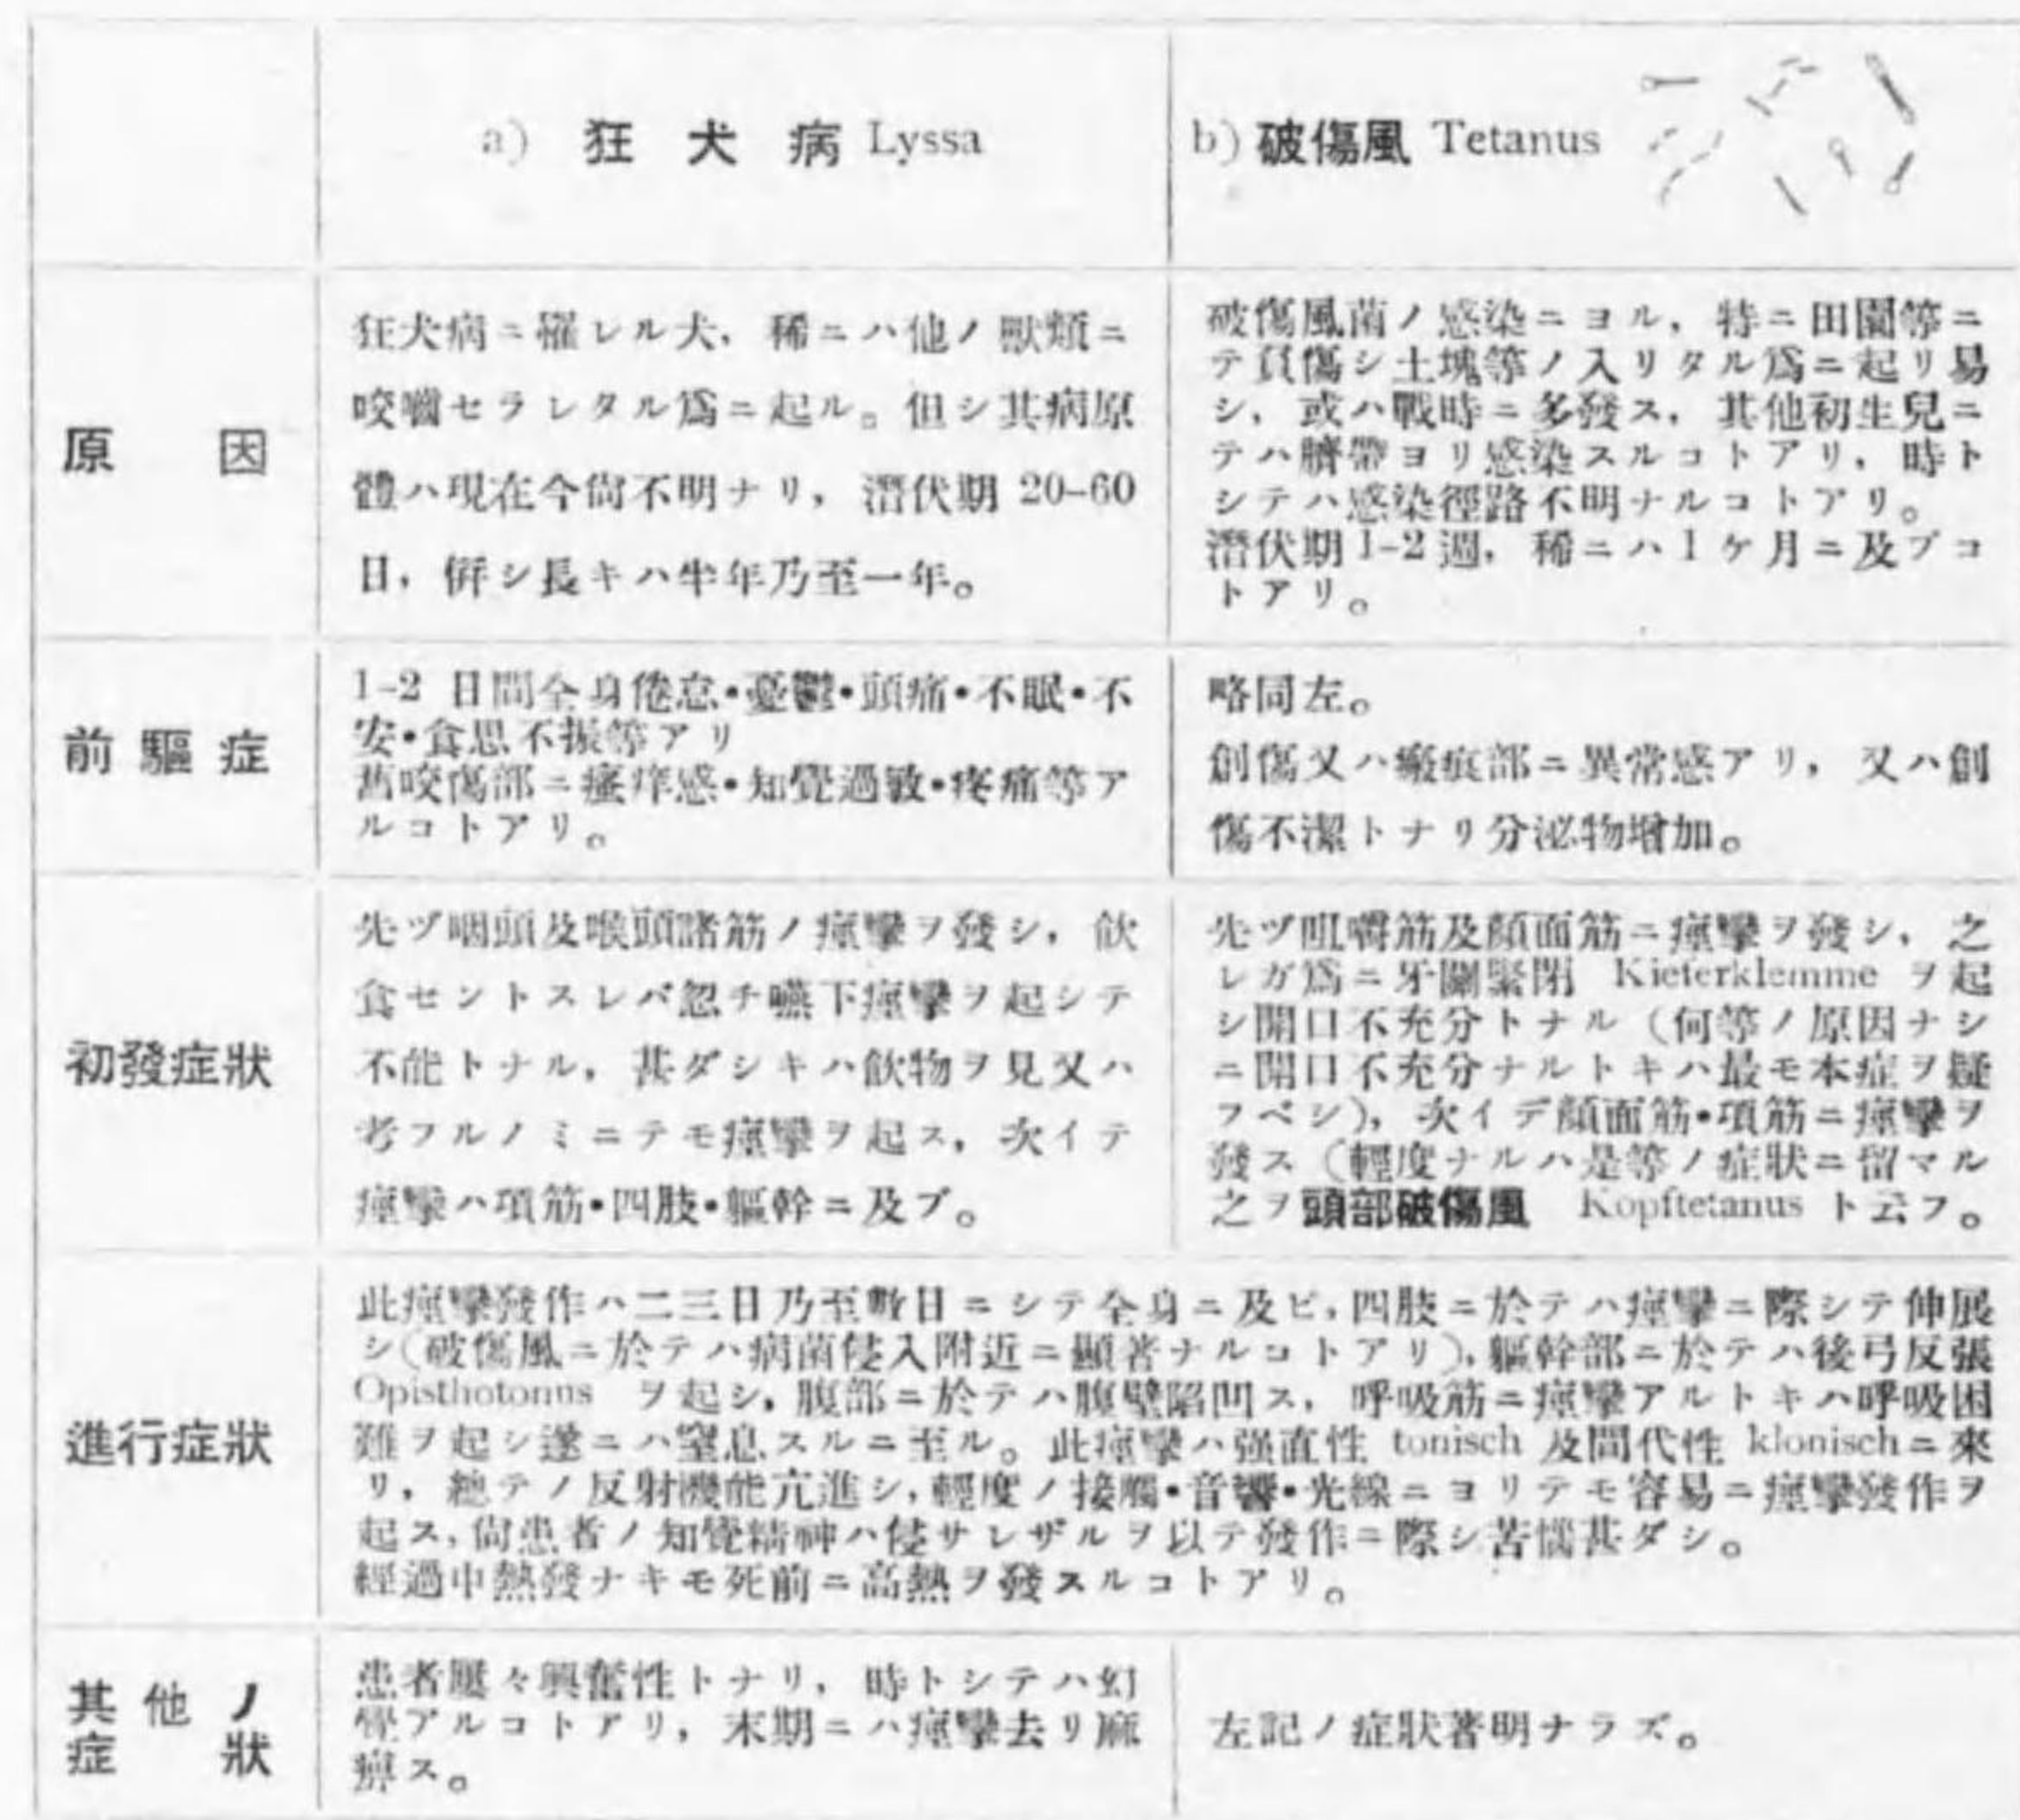 a) 狂犬病 Lyssa
b) 破傷風 Tetanus
原因
狂犬病ニ罹レル犬，稀ニハ他ノ獸類ニ
咬嚙セラレタル爲ニ起ル。但シ其病原
體ハ現在今尙不明ナリ，潛伏期 20-60
日，倂シ長キハ半年乃至一年。
破傷風菌ノ感染ニヨル，特ニ田園等ニ
テ負傷シ土塊等ノ入リタル爲ニ起リ易
シ，或ハ戰時ニ多發ス，其他初生兒ニ
テハ臍帶ヨリ感染スルコトアリ，時ト
シテハ感染徑路不明ナルコトアリ。
潛伏期 1-2 週，稀ニハ 1 ケ月ニ及ブコ
トアリ。
前驅症
1-2 日間全身倦怠•憂鬱•頭痛•不眠•不
安•食思不振等アリ
舊咬傷部ニ瘙痒感•知覺過敏•疼痛等ア
ルコトアリ。
略同左。
創傷又ハ瘢痕部ニ異常感アリ，又ハ創
傷不潔トナリ分泌物增加。
初發症狀
先ヅ咽頭及喉頭諸筋ノ痙攣ヲ發シ，飮
食セントスレバ忽チ嚥下痙攣ヲ起シテ
不能トナル，甚ダシキハ飮物ヲ見又ハ
考フルノミニテモ痙攣ヲ起ス，次イテ
痙攣ハ項筋•四肢•軀幹ニ及ブ。
先ヅ咀嚼筋及顏面筋ニ痙攣ヲ發シ，之
レガ爲ニ牙關緊閉 Kieferklemme ヲ起
シ開口不充分トナル（何等ノ原因ナシ
ニ開口不充分ナルトキハ最モ本症ヲ疑
フベシ），次イデ顏面筋•項筋ニ痙攣ヲ
發ス（輕度ナルハ是等ノ症狀ニ留マル
之ヲ頭部破傷風 Kopftetanus ト云フ。
進行症狀
此痙攣發作ハ二三日乃至數日ニシテ全身ニ及ビ，四肢ニ於テハ痙攣ニ際シテ伸展
シ（破傷風ニ於テハ病菌侵入附近ニ顯著ナルコトアリ），軀幹部ニ於テハ後弓反張
Opisthotonus ヲ起シ，腹部ニ於テハ腹壁陷凹ス，呼吸筋ニ痙攣アルトキハ呼吸困
難ヲ起シ遂ニハ窒息スルニ至ル。此痙攣ハ强直性 tonisch 及間代性 klonisch ニ來
リ，總テノ反射機能亢進シ，輕度ノ接觸•音響•光線ニヨリテモ容易ニ痙攣發作ヲ
起ス，尙患者ノ知覺精神ハ侵サレザルヲ以テ發作ニ際シ苦惱甚ダシ。
經過中熱發ナキモ死前ニ高熱ヲ發スルコトアリ。
其他ノ
症狀
患者屢々興奮性トナリ，時トシテハ幻
覺アルコトアリ，末期ニハ痙攣去リ麻
痹ス。
左記ノ症狀著明ナラズ。